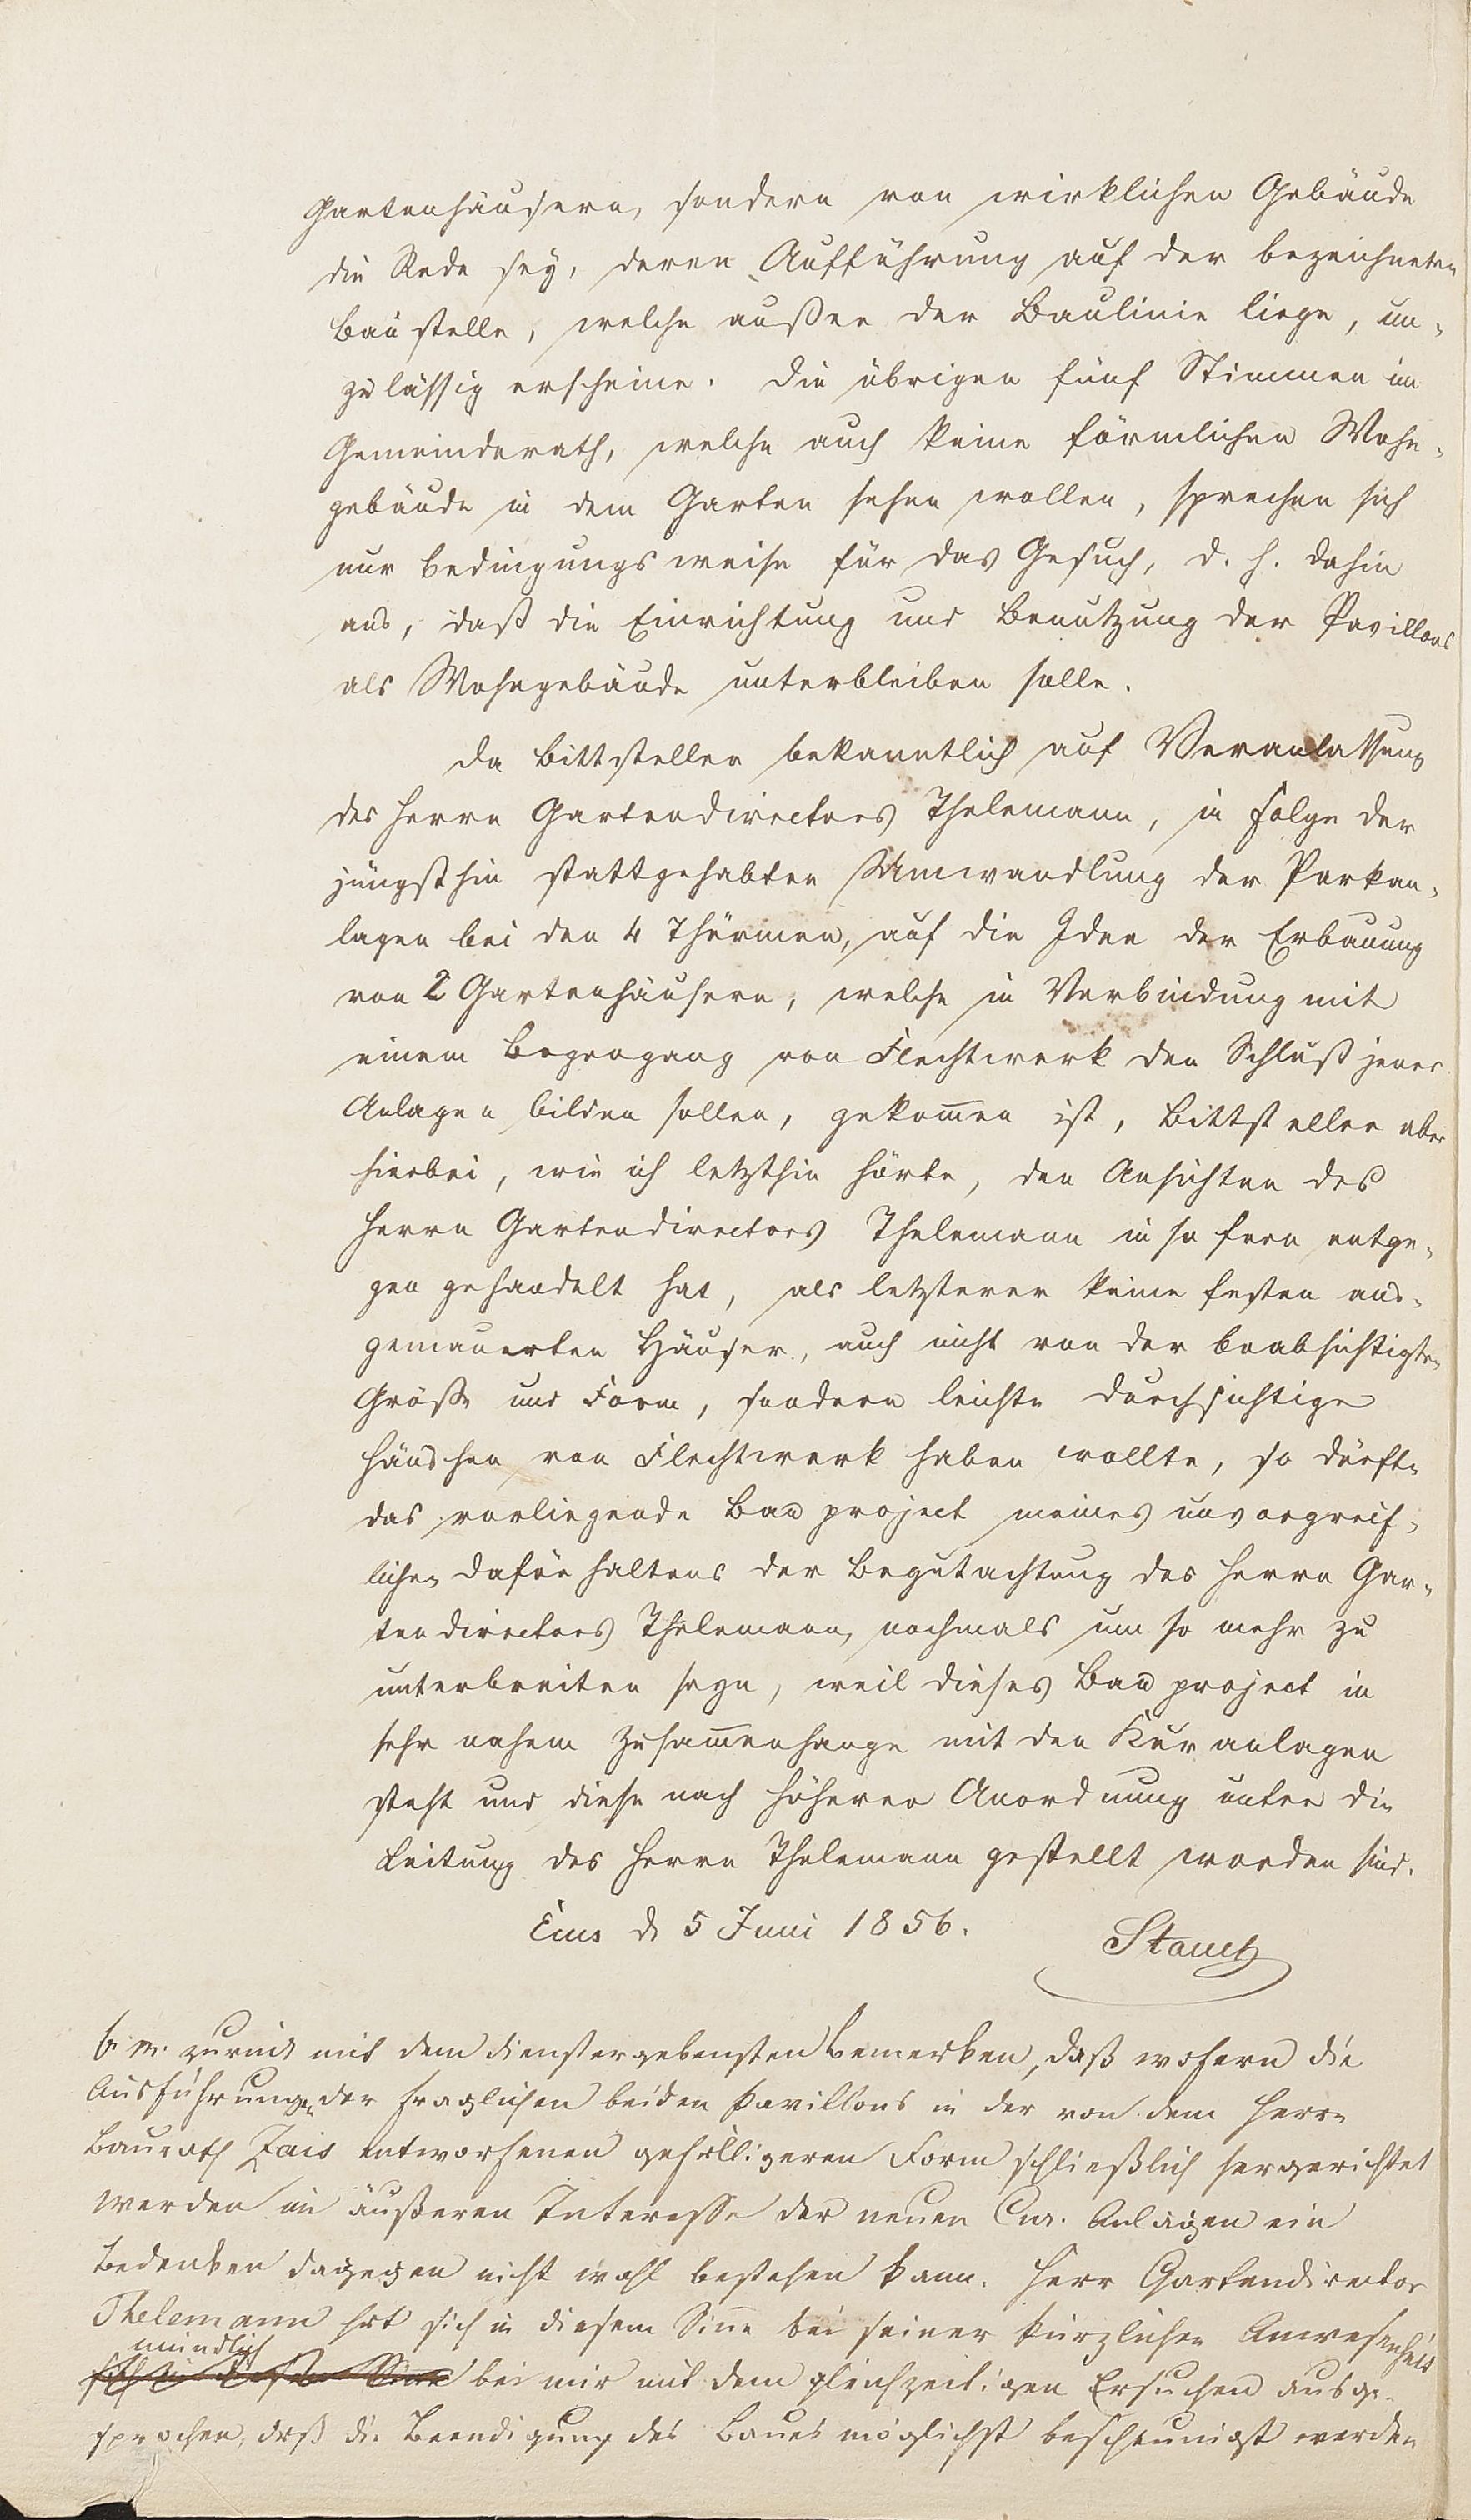 Gartenhäusern, sondern von wirklichen Gebäude
die Rede sey, deren Aufführung auf der bezeichneten
Baustelle, welche außer der Baulinie liege, un-
zulässig erscheine. Die übrigen fünf Stimmen im
Gemeinderath, welche auch keine förmlichen Wohn-
gebäude in dem Garten sehen wollen, sprechen sich
nur bedingungsweise für das Gesuch, d. h. dahin
aus, daß die Einrichtung und Benutzung der Pavillons
als Wohngebäude unterbleiben solle.
Da Bittsteller bekanntlich auf Veranlassung
des Herrn Gartendirectors Thelemann, in Folge der
jüngsthin stattgehabten Umwandlung der Parkan-
lagen bei den 4 Thürmen, auf die Idee der Erbauung
von 2 Gartenhäusern, welche in Verbindung mit
einem Bogengang von Flechtwerk den Schluß jener
Anlagen bilden sollen, gekom̅en ist, Bittsteller aber
hierbei, wie ich letzthin hörte, den Ansichten des
Herrn Gartendirectors Thelemann in so fern entge-
gen gehandelt hat, als letzterer keine festen aus-
gemauerten Häuser, auch nicht von der beabsichtigten
Größe und Form, sondern leichte durchsichtige
Häuschen von Flechtwerk haben wollte, so dürfte
das vorliegende Bauproject meines unvorgreif-
lichen Dafürhaltens der Begutachtung des Herrn Gar-
tendirectors Thelemann, nochmals um so mehr zu
unterbreiten seyn, weil dieses Bauproject in
sehr nahem Zusam̅enhange mit den Kuranlagen
steht und diese nach höherer Anordnung unter die
Leitung des Herrn Thelemann gestellt worden sind.
Ems d 5 Juni 1856.
Stauch
br. m. zurück mit dem dienstergebensten Bemerken, daß wofern die
Ausführungen der fraglichen beiden Pavillons in der von dem Herrn
Baurath Zais entworfenen gefälligeren Form schließlich hergerichtet
werden im äußeren Interesse der neuen Cur-Anlagen ein
Bedenken dagegen nicht wohl bestehen kann. Herr Gartendirector
Thelemann hat sich in diesem Sinn bei seiner kürzlichen Anwesenheit
mündlich
sich in diesem Sinne bei mir mit dem gleichzeitigen Ersuchen ausge-
sprochen, daß die Beendigung des Baues möglichst beschleunigt werden